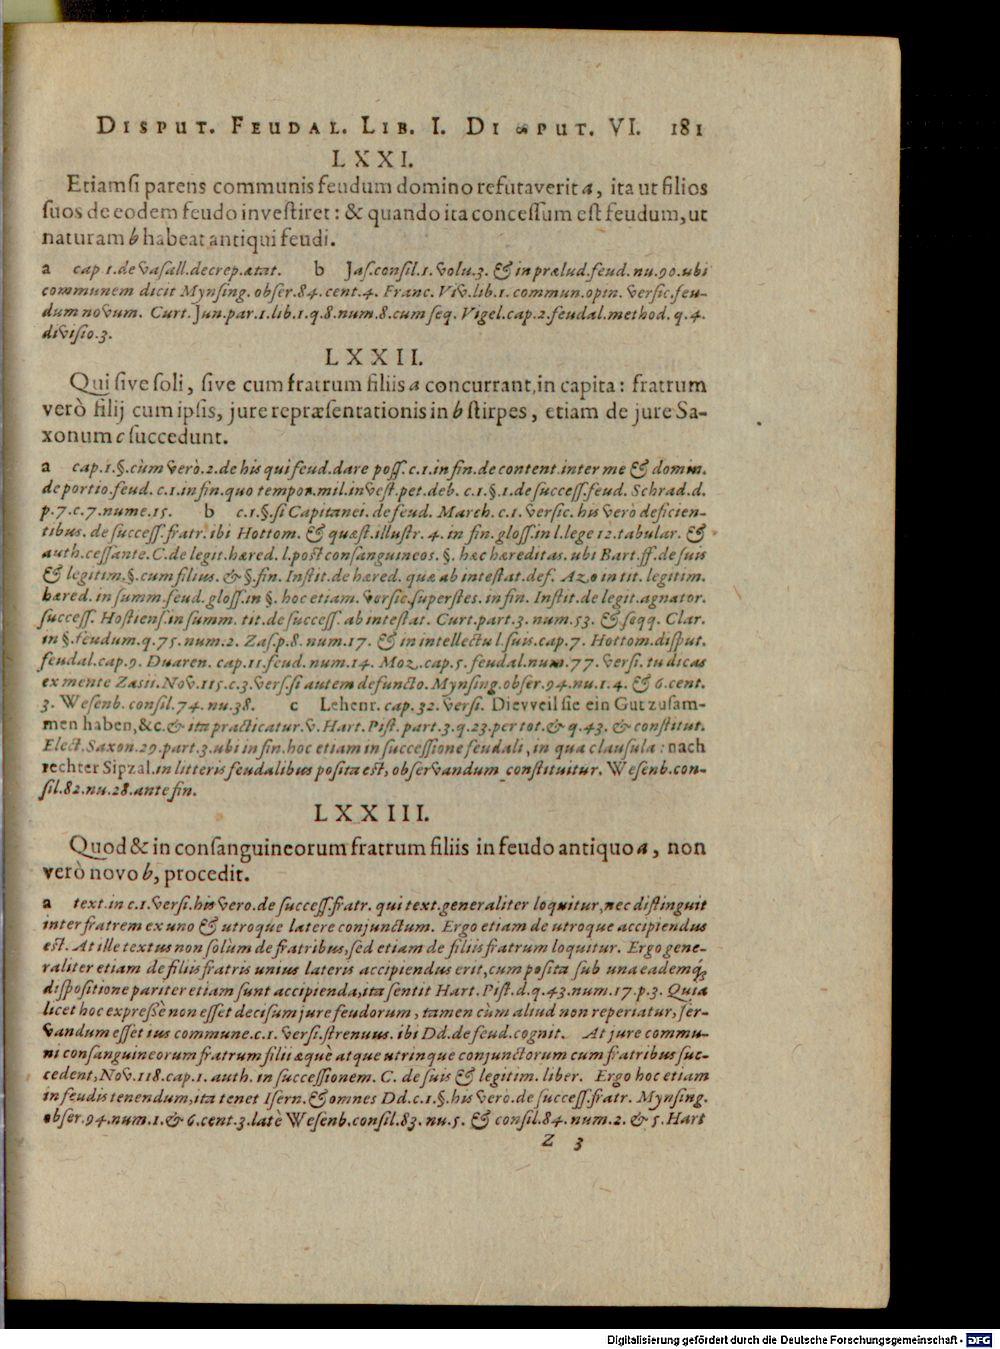 DISPUT. FEUDAL. LIB. I. DISPUT. VI. 181
LXXI.
Etiamsi parens communis feudum domino refutaverit a, ita ut filios
suos de eodem feudo investiret: & quando ita concessum est feudum, ut
naturam b habeat antiqui feudi.
a cap.1.de vasall.decrep.ætat. b Jas.consil.1.volu.3. & in prælud.feud.nu.90.ubi
communem dicit Mynsing. obser.84.cent.4. Franc. Viv.lib.1.commun.opin. versic.feu-
dum novum. Curt.Jun.par.1.lib.1.q.8.num.8.cum seq. Vigel.cap.2.feudal.method. q.4.
divisio.3.
LXXII.
Qui sive soli, sive cum fratrum filiis a concurrant, in capita: fratrum
verò filij cum ipsis, jure repræsentationis in b stirpes, etiam de jure Sa-
xonum c succedunt.
a cap.1.§.cùm verò.2.de his qui feud.dare poss. c.1.in fin.de content.inter me & domin.
de portio.feud. c.1.in fin.quo tempor.mil.invest.pet.deb. c.1.§.1.de success.feud. Schrad.d.
p.7.c.7.nume.15. b c.1.§.si Capitanei.de feud. March. c.1. versic. his verò deficien-
tibus. de success.fratr. ibi Hottom. & quæst.illustr. 4. in fin. gloss.in l.lege 12.tabular. &
auth.cessante.C.de legit.hæred. l.post consanguineos. §. hæc hæreditas. ubi Bart.ff.de suis
& legitim.§.cum filius. & §.fin. Instit.de hæred. quæ ab intestat.def. Azo in tit. legitim.
hæred. in summ.feud.gloss.in §. hoc etiam. versic.superstes. in fin. Instit.de legit.agnator.
success. Hostiens.in summ. tit.de success. ab intestat. Curt.part.3. num.53. & seqq. Clar.
in §.feudum.q.75.num.2. Zas.p.8. num.17. & in intellectu l.suis.cap.7. Hottom.disput.
feudal.cap.9. Duaren. cap.11.feud.num.14. Moz.cap.5. feudal.num.77. versi. tu dicas
ex mente Zasii. Nov.115.c.3.vers.si autem defuncto. Mynsing.obser.94.nu.1.4. & 6.cent.
3. Wesenb. consil.74. nu.38. c Lehenr. cap.32. versi. Dievveil sie ein Gut zusam-
men haben, &c. & ita practicatur. v. Hart. Pist. part.3.q.23.per tot. & q.43. & constitut.
Elect.Saxon.29.part.3.ubi in fin. hoc etiam in successione feudali, in qua clausula: nach
rechter Sipzal.in litteris feudalibus posita est, observandum constituitur. Wesenb.con-
sil.82.nu.28.ante fin.
LXXIII.
Quod & in consanguineorum fratrum filiis in feudo antiquo a, non
verò novo b, procedit.
a text.in c.1.versi.his vero.de success.fratr. qui text.generaliter loquitur, nec distinguit
inter fratrem ex uno & utroque latere conjunctum. Ergo etiam de utroque accipiendus
est. At ille textus non solùm de fratribus, sed etiam de filiis fratrum loquitur. Ergo gene-
raliter etiam de filiis fratris unius lateris accipiendus erit, cum posita sub una eademq́;
dispositione pariter etiam sunt accipienda, ita sentit Hart. Pist.d.q.43.num.17.p.3. Quia
licet hoc expressè non esset decisum jure feudorum, tamen cùm aliud non reperiatur, ser-
vandum esset ius commune.c.1. versi.strenuus. ibi Dd.de feud.cognit. At jure commu-
ni consanguineorum fratrum filii æquè atque utrinque conjunctorum cum fratribus suc-
cedent, Nov.118.cap.1. auth. in successionem. C. de suis & legitim. liber. Ergo hoc etiam
in feudis tenendum, ita tenet Isern. & omnes Dd.c.1.§. his vero.de success.fratr. Mynsing.
obser.94.num.1.& 6.cent.3.latè Wesenb.consil.83. nu.5. & consil.84.num.2. & 5.Hart
Z 3
Digitalisierung gefördert durch die Deutsche Forschungsgemeinschaft - DFG